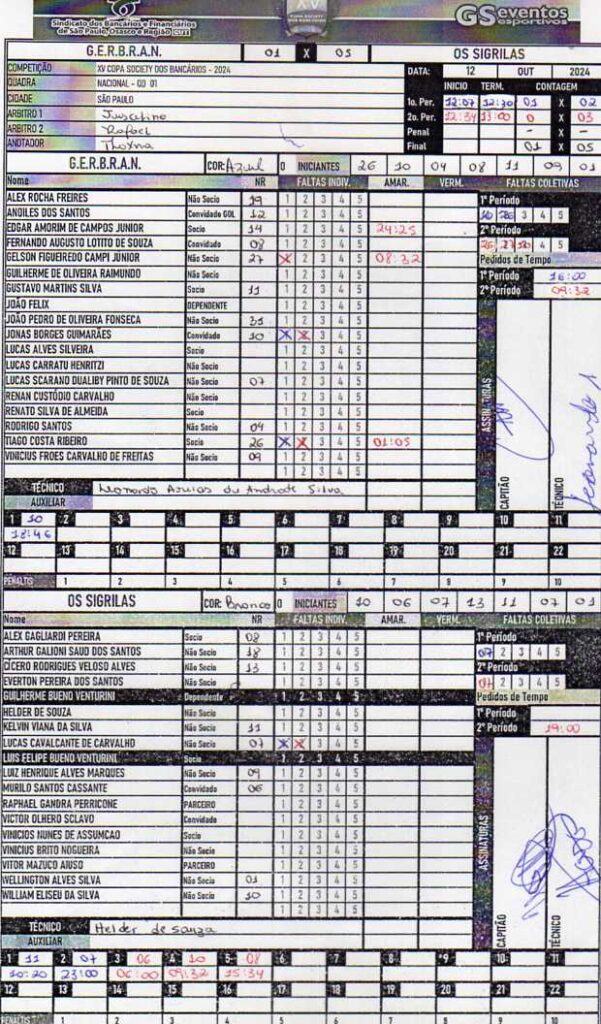 Sindicato dos Bancários e Financiários
de São Paulo, Osasco e Região CUT
XV
GSeventos
esportivos
G.E.R.B.R.A.N. 01 X 05 OS SIGRILAS
COMPETIÇÃO XV COPA SOCIETY DOS BANCÁRIOS - 2024 DATA: 12 OUT 2024
QUADRA NACIONAL - QD 01 INICIO TERM. CONTAGEM
CIDADE SÃO PAULO 1o. Per. 12:07 12:30 01 X 02
ARBITRO 1 2o. Per. 12:34 13:00 0 X 03
ARBITRO 2 Rafael Penal - X -
ANOTADOR Thoyma Final 01 X 05
G.E.R.B.R.A.N. COR: Azul 0 INICIANTES 26 10 04 08 11 09 01
Nome NR FALTAS INDIV. AMAR. VERM. FALTAS COLETIVAS
ALEX ROCHA FREIRES Não Socio 19 1 2 3 4 5 1º Período
ANOILES DOS SANTOS Convidado GOL 12 1 2 3 4 5 10 26 3 4 5
EDGAR AMORIM DE CAMPOS JUNIOR Socio 14 1 2 3 4 5 24:25 2º Período
FERNANDO AUGUSTO LOTITO DE SOUZA Convidado 08 1 2 3 4 5 26 27 10 4 5
GELSON FIGUEIREDO CAMPI JÚNIOR Não Socio 27 X 2 3 4 5 08:32 Pedidos de Tempo
GUILHERME DE OLIVEIRA RAIMUNDO Não Socio 1 2 3 4 5 1º Período 16:00
GUSTAVO MARTINS SILVA Socio 11 1 2 3 4 5 2º Período 09:32
JOÃO FELIX DEPENDENTE 1 2 3 4 5
JOÃO PEDRO DE OLIVEIRA FONSECA Não Socio 31 1 2 3 4 5
JONAS BORGES GUIMARÃES Convidado 10 X X 3 4 5
LUCAS ALVES SILVEIRA Socio 1 2 3 4 5
LUCAS CARRATU HENRITZI Não Socio 1 2 3 4 5
LUCAS SCARANO DUALIBY PINTO DE SOUZA Não Socio 07 1 2 3 4 5
RENAN CUSTÓDIO CARVALHO Não Socio 1 2 3 4 5
RENATO SILVA DE ALMEIDA Socio 1 2 3 4 5
RODRIGO SANTOS Não Socio 04 1 2 3 4 5
TIAGO COSTA RIBEIRO Socio 26 X X 3 4 5 01:05
VINICIUS FROES CARVALHO DE FREITAS Não Socio 09 1 2 3 4 5
1 2 3 4 5
ASSINATURAS
CAPITÃO
TÉCNICO
TÉCNICO Leonardo de Andrade Silva
AUXILIAR
1 10 2 3 4 5 6 7 8 9 10 11
18:46
12 13 14 15 16 17 18 19 20 21 22
PENALTIS 1 2 3 4 5 6 7 8 9 10
OS SIGRILAS COR: Branco 0 INICIANTES 10 06 07 13 11 07 01
Nome NR FALTAS INDIV. AMAR. VERM. FALTAS COLETIVAS
ALEX GAGLIARDI PEREIRA Socio 08 1 2 3 4 5 1º Período
ARTHUR GALIONI SAUD DOS SANTOS Não Socio 18 1 2 3 4 5 07 2 3 4 5
CÍCERO RODRIGUES VELOSO ALVES Não Socio 13 1 2 3 4 5 2º Período
EVERTON PEREIRA DOS SANTOS Não Socio 1 2 3 4 5 07 2 3 4 5
GUILHERME BUENO VENTURINI Dependente 1 2 3 4 5 Pedidos de Tempo
HELDER DE SOUZA Não Socio 1 2 3 4 5 1º Período
KELVIN VIANA DA SILVA Não Socio 11 1 2 3 4 5 2º Período 19:00
LUCAS CAVALCANTE DE CARVALHO Não Socio 07 X X 3 4 5
LUIS FELIPE BUENO VENTURINI Socio 1 2 3 4 5
LUIZ HENRIQUE ALVES MARQUES Não Socio 09 1 2 3 4 5
MURILO SANTOS CASSANTE Convidado 06 1 2 3 4 5
RAPHAEL GANDRA PERRICONE PARCEIRO 1 2 3 4 5
VICTOR OLHERO SCLAVO Convidado 1 2 3 4 5
VINICIOS NUNES DE ASSUMCAO Socio 1 2 3 4 5
VINICIUS BRITO NOGUEIRA Não Socio 1 2 3 4 5
VITOR MAZUCO AIUSO PARCEIRO 1 2 3 4 5
WELLINGTON ALVES SILVA Não Socio 01 1 2 3 4 5
WILLIAM ELISEU DA SILVA Não Socio 10 1 2 3 4 5
1 2 3 4 5
ASSINATURAS
CAPITÃO
TÉCNICO
TÉCNICO Helder de souza
AUXILIAR
1 11 2 07 3 06 4 10 5 08 6 7 8 9 10 11
10:20 23:00 06:00 09:32 15:34
12 13 14 15 16 17 18 19 20 21 22
PENALTIS 1 2 3 4 5 6 7 8 9 10